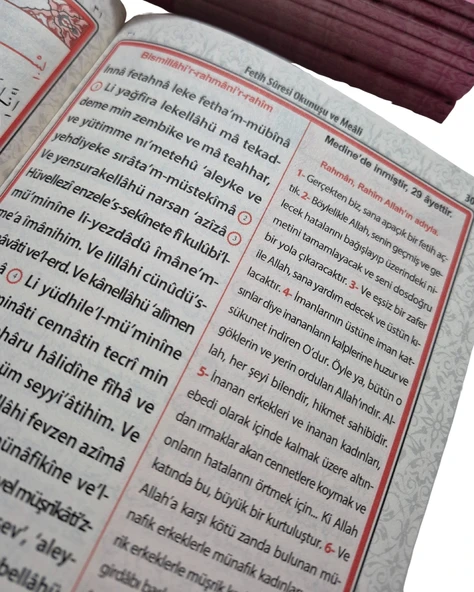 Fetih Sûresi Okunuşu ve Meâli
Bismillâhi'r-rahmâni'r-rahîm
İnnâ fetahnâ leke fetha'm-mübînâ
1 Li yağfira lekellâhü mâ tekad-
deme min zembike ve mâ teahhar,
ve yütimme ni'metehû 'aleyke ve
yehdiyeke sırâta'm-müstekîmâ 2
Ve yensurakellâhü narsan 'azîzâ 3
Hüvellezî enzele's-sekînete fî kulûbi'l-
mü'minîne li-yezdâdû îmâne'm-
me'a îmânihim. Ve lillâhi cünûdü's-
vâti ve'l-erd. Ve kânellâhü alîmen
4 Li yüdhile'l-mü'minîne
cennâtin tecrî min
hâlidîne fîhâ ve
seyyi'âtihim. Ve
fevzen azîmâ
ve'l-
'aley-
Medine'de inmiştir, 29 âyettir.
Rahmân, Rahîm Allah'ın adıyla.
1- Gerçekten biz, sana apaçık bir fetih aç-
tık. 2- Böylelikle Allah, senin geçmiş ve ge-
lecek hatalarını bağışlayıp üzerindeki ni-
metini tamamlayacak ve seni dosdoğru
bir yola çıkaracaktır. 3- Ve eşsiz bir zafer
ile Allah, sana yardım edecek ve üstün kı-
lacaktır. 4- İmanlarının üstüne iman kat-
sınlar diye inananların kalplerine huzur ve
sükunet indiren O'dur. Öyle ya, bütün o
göklerin ve yerin orduları Allah'ındır. Al-
lah, her şeyi bilendir, hikmet sahibidir.
5- İnanan erkekleri ve inanan kadınları,
ebedi olarak içinde kalmak üzere altın-
dan ırmaklar akan cennetlere koymak ve
onların hatalarını örtmek için... Ki Allah
katında bu, büyük bir kurtuluştur. 6- Ve
Allah'a karşı kötü zanda bulunan mü-
nafık erkeklerle münafık kadınları
rik erkeklerle müşrik
girdâbı